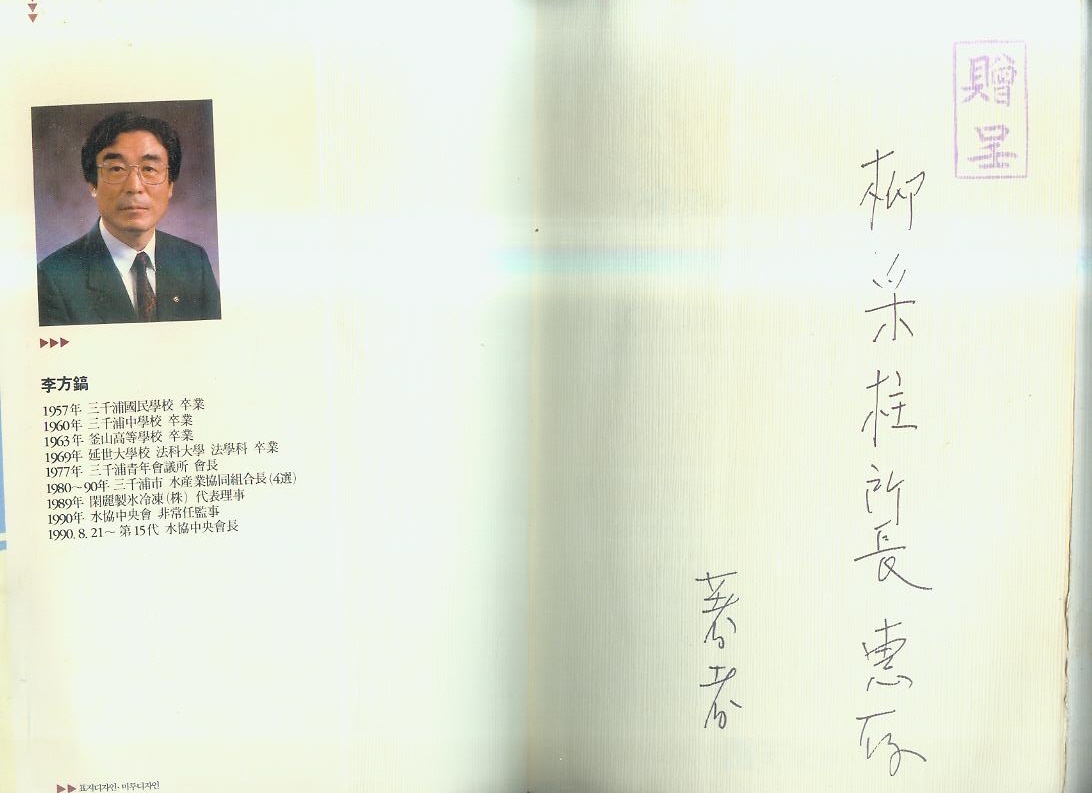 李方鎬
1957年 三千浦國民學校 卒業
1960年 三千浦中學校 卒業
1963年 釜山高等學校 卒業
1969年 延世大學校 法科大學 法學科 卒業
1977年 三千浦靑年會議所 會長
1980~90年 三千浦市 水産業協同組合長(4選)
1989年 閑麗製氷冷凍(株) 代表理事
1990年 水協中央會 非常任監事
1990. 8. 21~ 第15代 水協中央會長
표지디자인·미투디자인
贈呈
柳采柱所長惠存
著者